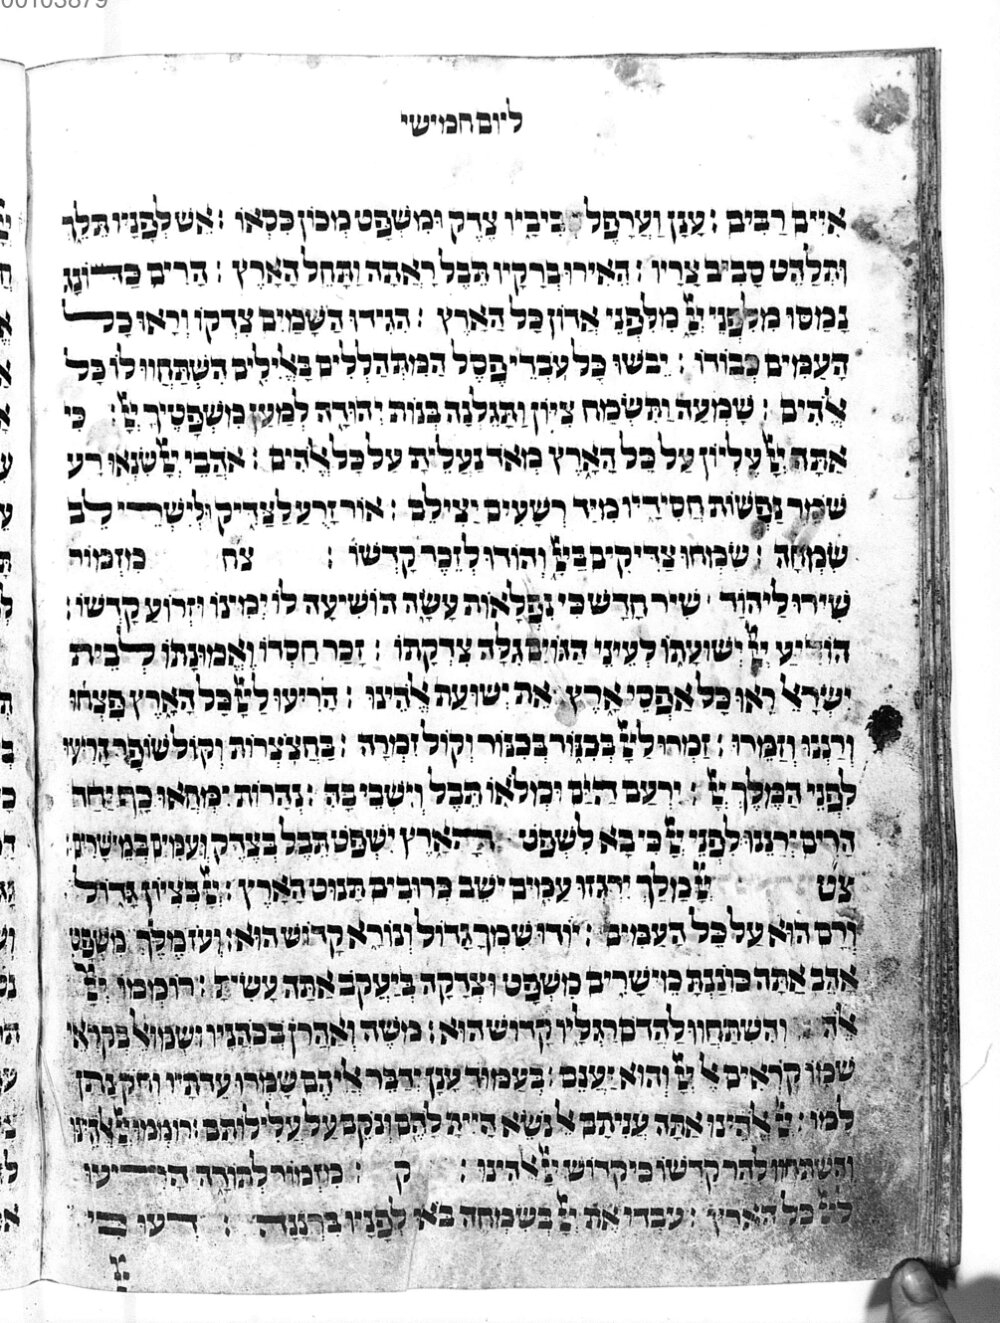 00103879
ליום חמישי
אִיִּים רַבִּים : עָנָן וַעֲרָפֶל סְבִיבָיו צֶדֶק וּמִשְׁפָּט מְכוֹן כִּסְאוֹ : אֵשׁ לְפָנָיו תֵּלֵךְ
וּתְלַהֵט סָבִיב צָרָיו : הֵאִירוּ בְרָקָיו תֵּבֵל רָאֲתָה וַתָּחֵל הָאָרֶץ : הָרִים כַּדּוֹנַג
נָמַסּוּ מִלִּפְנֵי יְיָ מִלִּפְנֵי אֲדוֹן כָּל הָאָרֶץ : הִגִּידוּ הַשָּׁמַיִם צִדְקוֹ וְרָאוּ כָל
הָעַמִּים כְּבוֹדוֹ : יֵבֹשׁוּ כָּל עֹבְדֵי פֶסֶל הַמִּתְהַלְלִים בָּאֱלִילִים הִשְׁתַּחֲווּ לוֹ כָּל
אֱלֹהִים : שָׁמְעָה וַתִּשְׂמַח צִיּוֹן וַתָּגֵלְנָה בְּנוֹת יְהוּדָה לְמַעַן מִשְׁפָּטֶיךָ יְיָ : כִּי
אַתָּה יְיָ עֶלְיוֹן עַל כָּל הָאָרֶץ מְאֹד נַעֲלֵיתָ עַל כָּל אֱלֹהִים : אֹהֲבֵי יְיָ שִׂנְאוּ רָע
שֹׁמֵר נַפְשׁוֹת חֲסִידָיו מִיַּד רְשָׁעִים יַצִּילֵם : אוֹר זָרֻעַ לַצַּדִּיק וּלְיִשְׁרֵי לֵב
שִׂמְחָה : שִׂמְחוּ צַדִּיקִים בַּייָ וְהוֹדוּ לְזֵכֶר קָדְשׁוֹ : צח מִזְמוֹר
שִׁירוּ לַיהוָה שִׁיר חָדָשׁ כִּי נִפְלָאוֹת עָשָׂה הוֹשִׁיעָה לּוֹ יְמִינוֹ וּזְרוֹעַ קָדְשׁוֹ :
הוֹדִיעַ יְיָ יְשׁוּעָתוֹ לְעֵינֵי הַגּוֹיִם גִּלָּה צִדְקָתוֹ : זָכַר חַסְדּוֹ וֶאֱמוּנָתוֹ לְבֵית
יִשְׂרָאֵל רָאוּ כָל אַפְסֵי אָרֶץ אֵת יְשׁוּעַת אֱלֹהֵינוּ : הָרִיעוּ לַייָ כָּל הָאָרֶץ פִּצְחוּ
וְרַנְּנוּ וְזַמֵּרוּ : זַמְּרוּ לַייָ בְּכִנּוֹר בְּכִנּוֹר וְקוֹל זִמְרָה : בַּחֲצֹצְרוֹת וְקוֹל שׁוֹפָר הָרִיעוּ
לִפְנֵי הַמֶּלֶךְ יְיָ : יִרְעַם הַיָּם וּמְלֹאוֹ תֵּבֵל וְיֹשְׁבֵי בָהּ : נְהָרוֹת יִמְחֲאוּ כָף יַחַד
הָרִים יְרַנֵּנוּ לִפְנֵי יְיָ כִּי בָא לִשְׁפֹּט הָאָרֶץ יִשְׁפֹּט תֵּבֵל בְּצֶדֶק וְעַמִּים בְּמֵישָׁרִים :
צט יְיָ מָלָךְ יִרְגְּזוּ עַמִּים יֹשֵׁב כְּרוּבִים תָּנוּט הָאָרֶץ : יְיָ בְּצִיּוֹן גָּדוֹל
וְרָם הוּא עַל כָּל הָעַמִּים : יוֹדוּ שִׁמְךָ גָּדוֹל וְנוֹרָא קָדוֹשׁ הוּא : וְעֹז מֶלֶךְ מִשְׁפָּט
אָהֵב אַתָּה כּוֹנַנְתָּ מֵישָׁרִים מִשְׁפָּט וּצְדָקָה בְּיַעֲקֹב אַתָּה עָשִׂיתָ : רוֹמְמוּ יְיָ
וְהִשְׁתַּחֲווּ לַהֲדֹם רַגְלָיו קָדוֹשׁ הוּא : מֹשֶׁה וְאַהֲרֹן בְּכֹהֲנָיו וּשְׁמוּאֵל בְּקֹרְאֵי
שְׁמוֹ קֹרִאים אֶל יְיָ וְהוּא יַעֲנֵם : בְּעַמּוּד עָנָן יְדַבֵּר אֲלֵיהֶם שָׁמְרוּ עֵדֹתָיו וְחֹק נָתַן
לָמוֹ : יְיָ אֱלֹהֵינוּ אַתָּה עֲנִיתָם אֵל נֹשֵׂא הָיִיתָ לָהֶם וְנֹקֵם עַל עֲלִילוֹתָם : רוֹמְמוּ יְיָ אֱלֹהֵינוּ
וְהִשְׁתַּחֲווּ לְהַר קָדְשׁוֹ כִּי קָדוֹשׁ יְיָ אֱלֹהֵינוּ : ק : מִזְמוֹר לְתוֹדָה הָרִיעוּ
לַייָ כָּל הָאָרֶץ : עִבְדוּ אֶת יְיָ בְּשִׂמְחָה בֹּאוּ לְפָנָיו בִּרְנָנָה : דְּעוּ כִּי